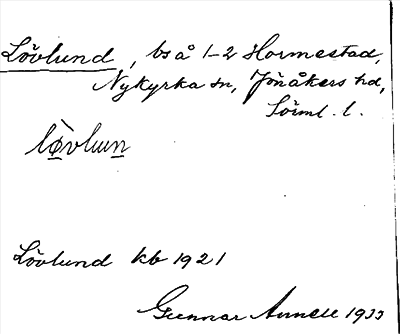 Lövlund, bs å 1-2 Hormestad,
Nykyrka sn, Jönåkers hd,
Sörml. l.
lø̀vlun
Lövlund kb 1921
Gunnar Annell 1933